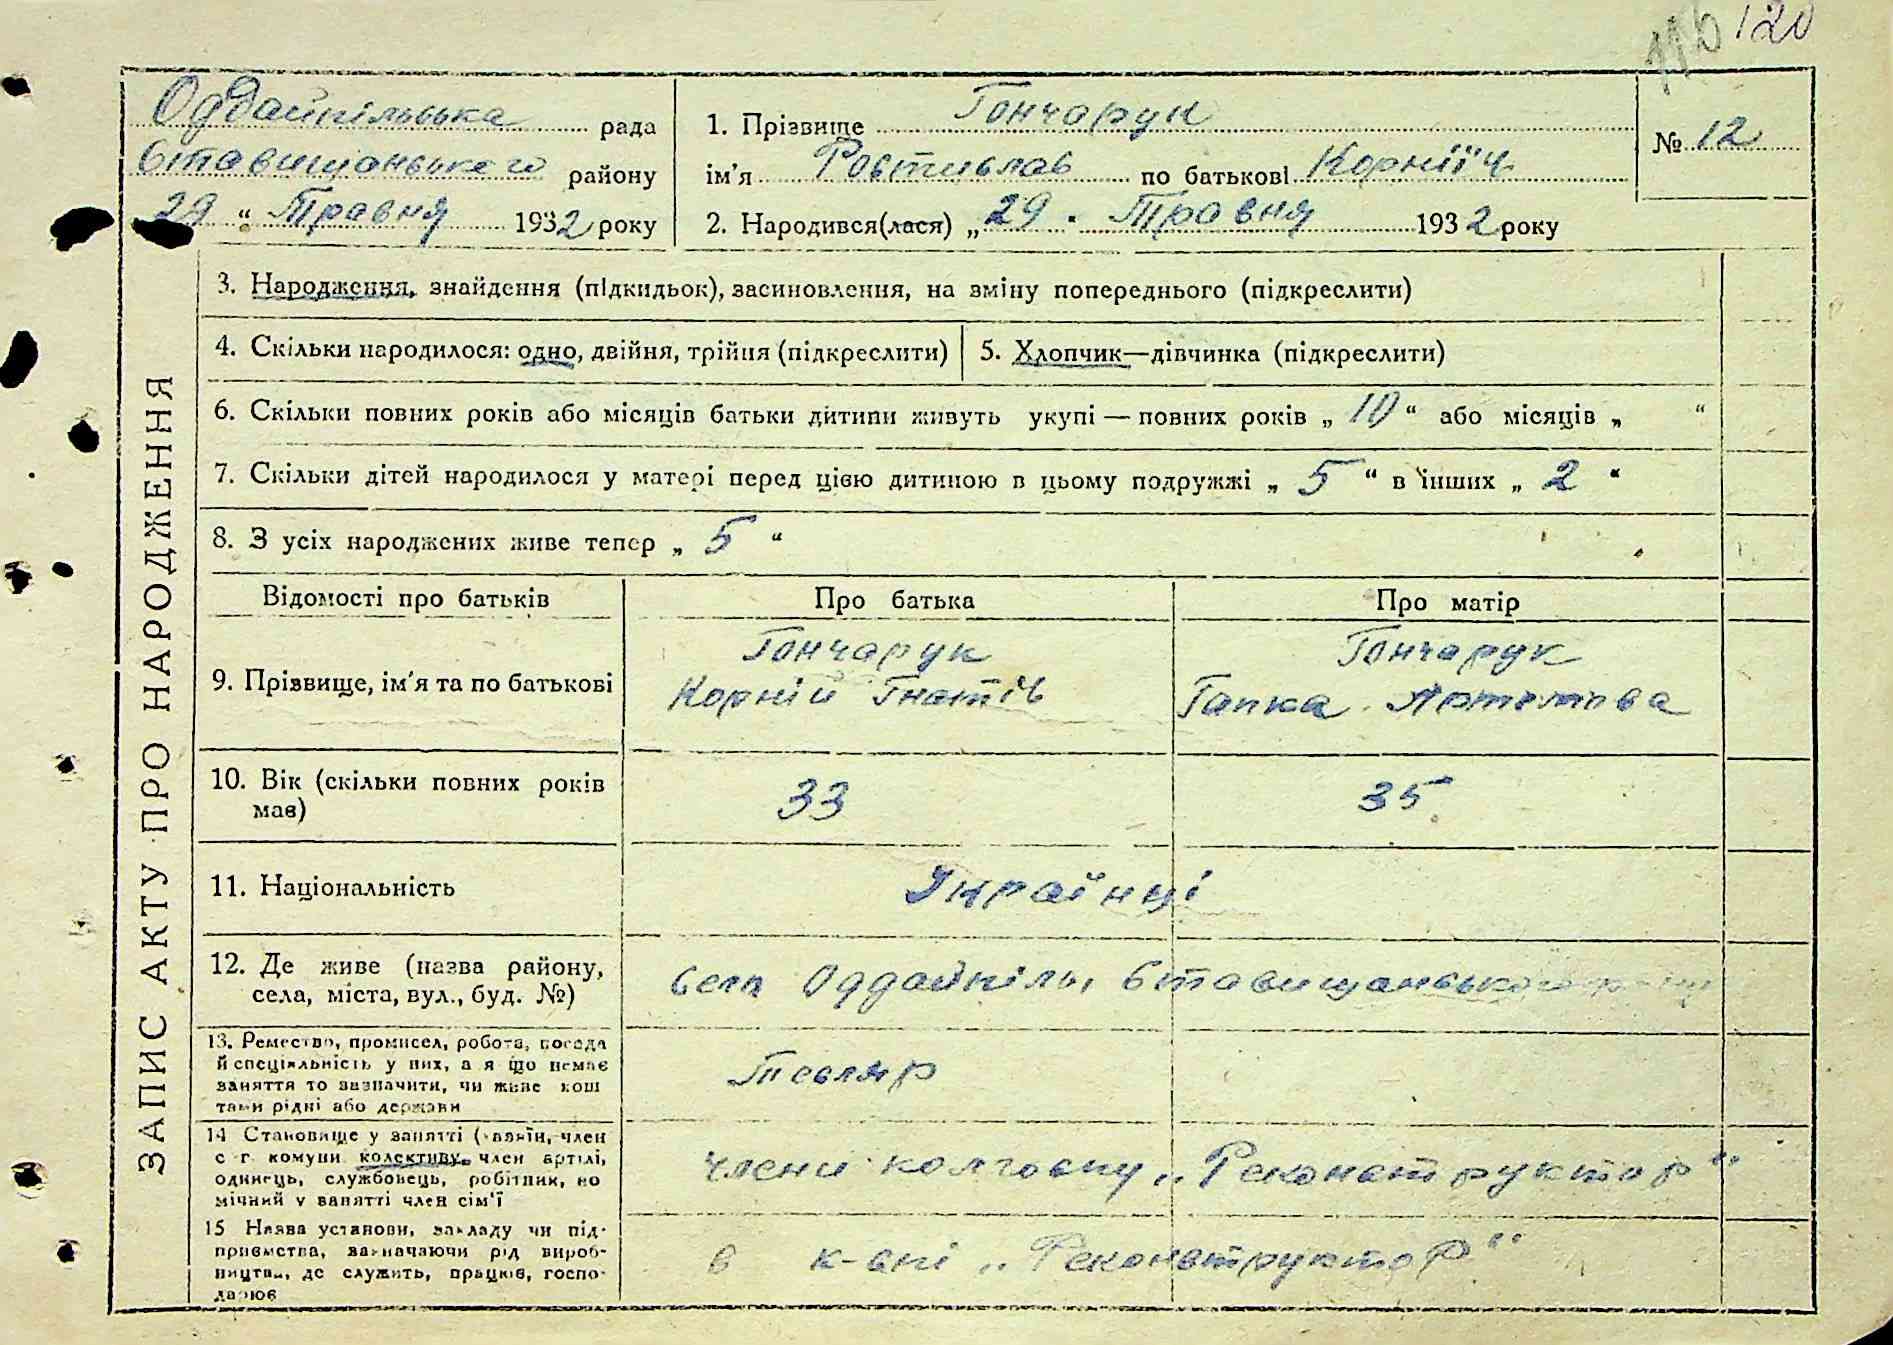 116 120
Оддайпільська рада
Ставищанського району
29 “ Травня 1932 року
1. Прізвище Гончарук
ім'я Ростислав по батькові Корніїч
2. Народився(лася) „ 29 " Травня 1932 року
№ 12
ЗАПИС АКТУ ПРО НАРОДЖЕННЯ
3. Народження, знайдення (підкидьок), засиновлення, на зміну попереднього (підкреслити)
4. Скільки народилося: одно, двійня, трійня (підкреслити)
5. Хлопчик—дівчинка (підкреслити)
6. Скільки повних років або місяців батьки дитини живуть укупі — повних років „ 10 “ або місяців „ “
7. Скільки дітей народилося у матері перед цією дитиною в цьому подружжі „ 5 “ в інших „ 2 “
8. З усіх народжених живе тепер „ 5 “
Відомості про батьків
Про батька
Про матір
9. Прізвище, ім'я та по батькові
Гончарук
Корній Гнатів
Гончарук
Гапка Артемова
10. Вік (скільки повних років
має)
33
35
11. Національність
Українці
12. Де живе (назва району,
села, міста, вул., буд. №)
Село Оддайпіль, Ставищанського
13. Ремество, промисел, робота, посада
й спеціяльність у них, а я що немає
заняття то зазначити, чи живе кош
тами рідні або держави
Тесляр
14 Становище у занятті (хазяїн, член
с г. комуни колективу, член артілі,
одинець, службовець, робітник, по
мічний у занятті член сім'ї
члени колгоспу „Реконструктор“
15 Назва установи, закладу чи під-
приємства, зазначаючи рід вироб-
ництва, де служить, працює, госпо-
дарює
в к-спі „Реконструктор“